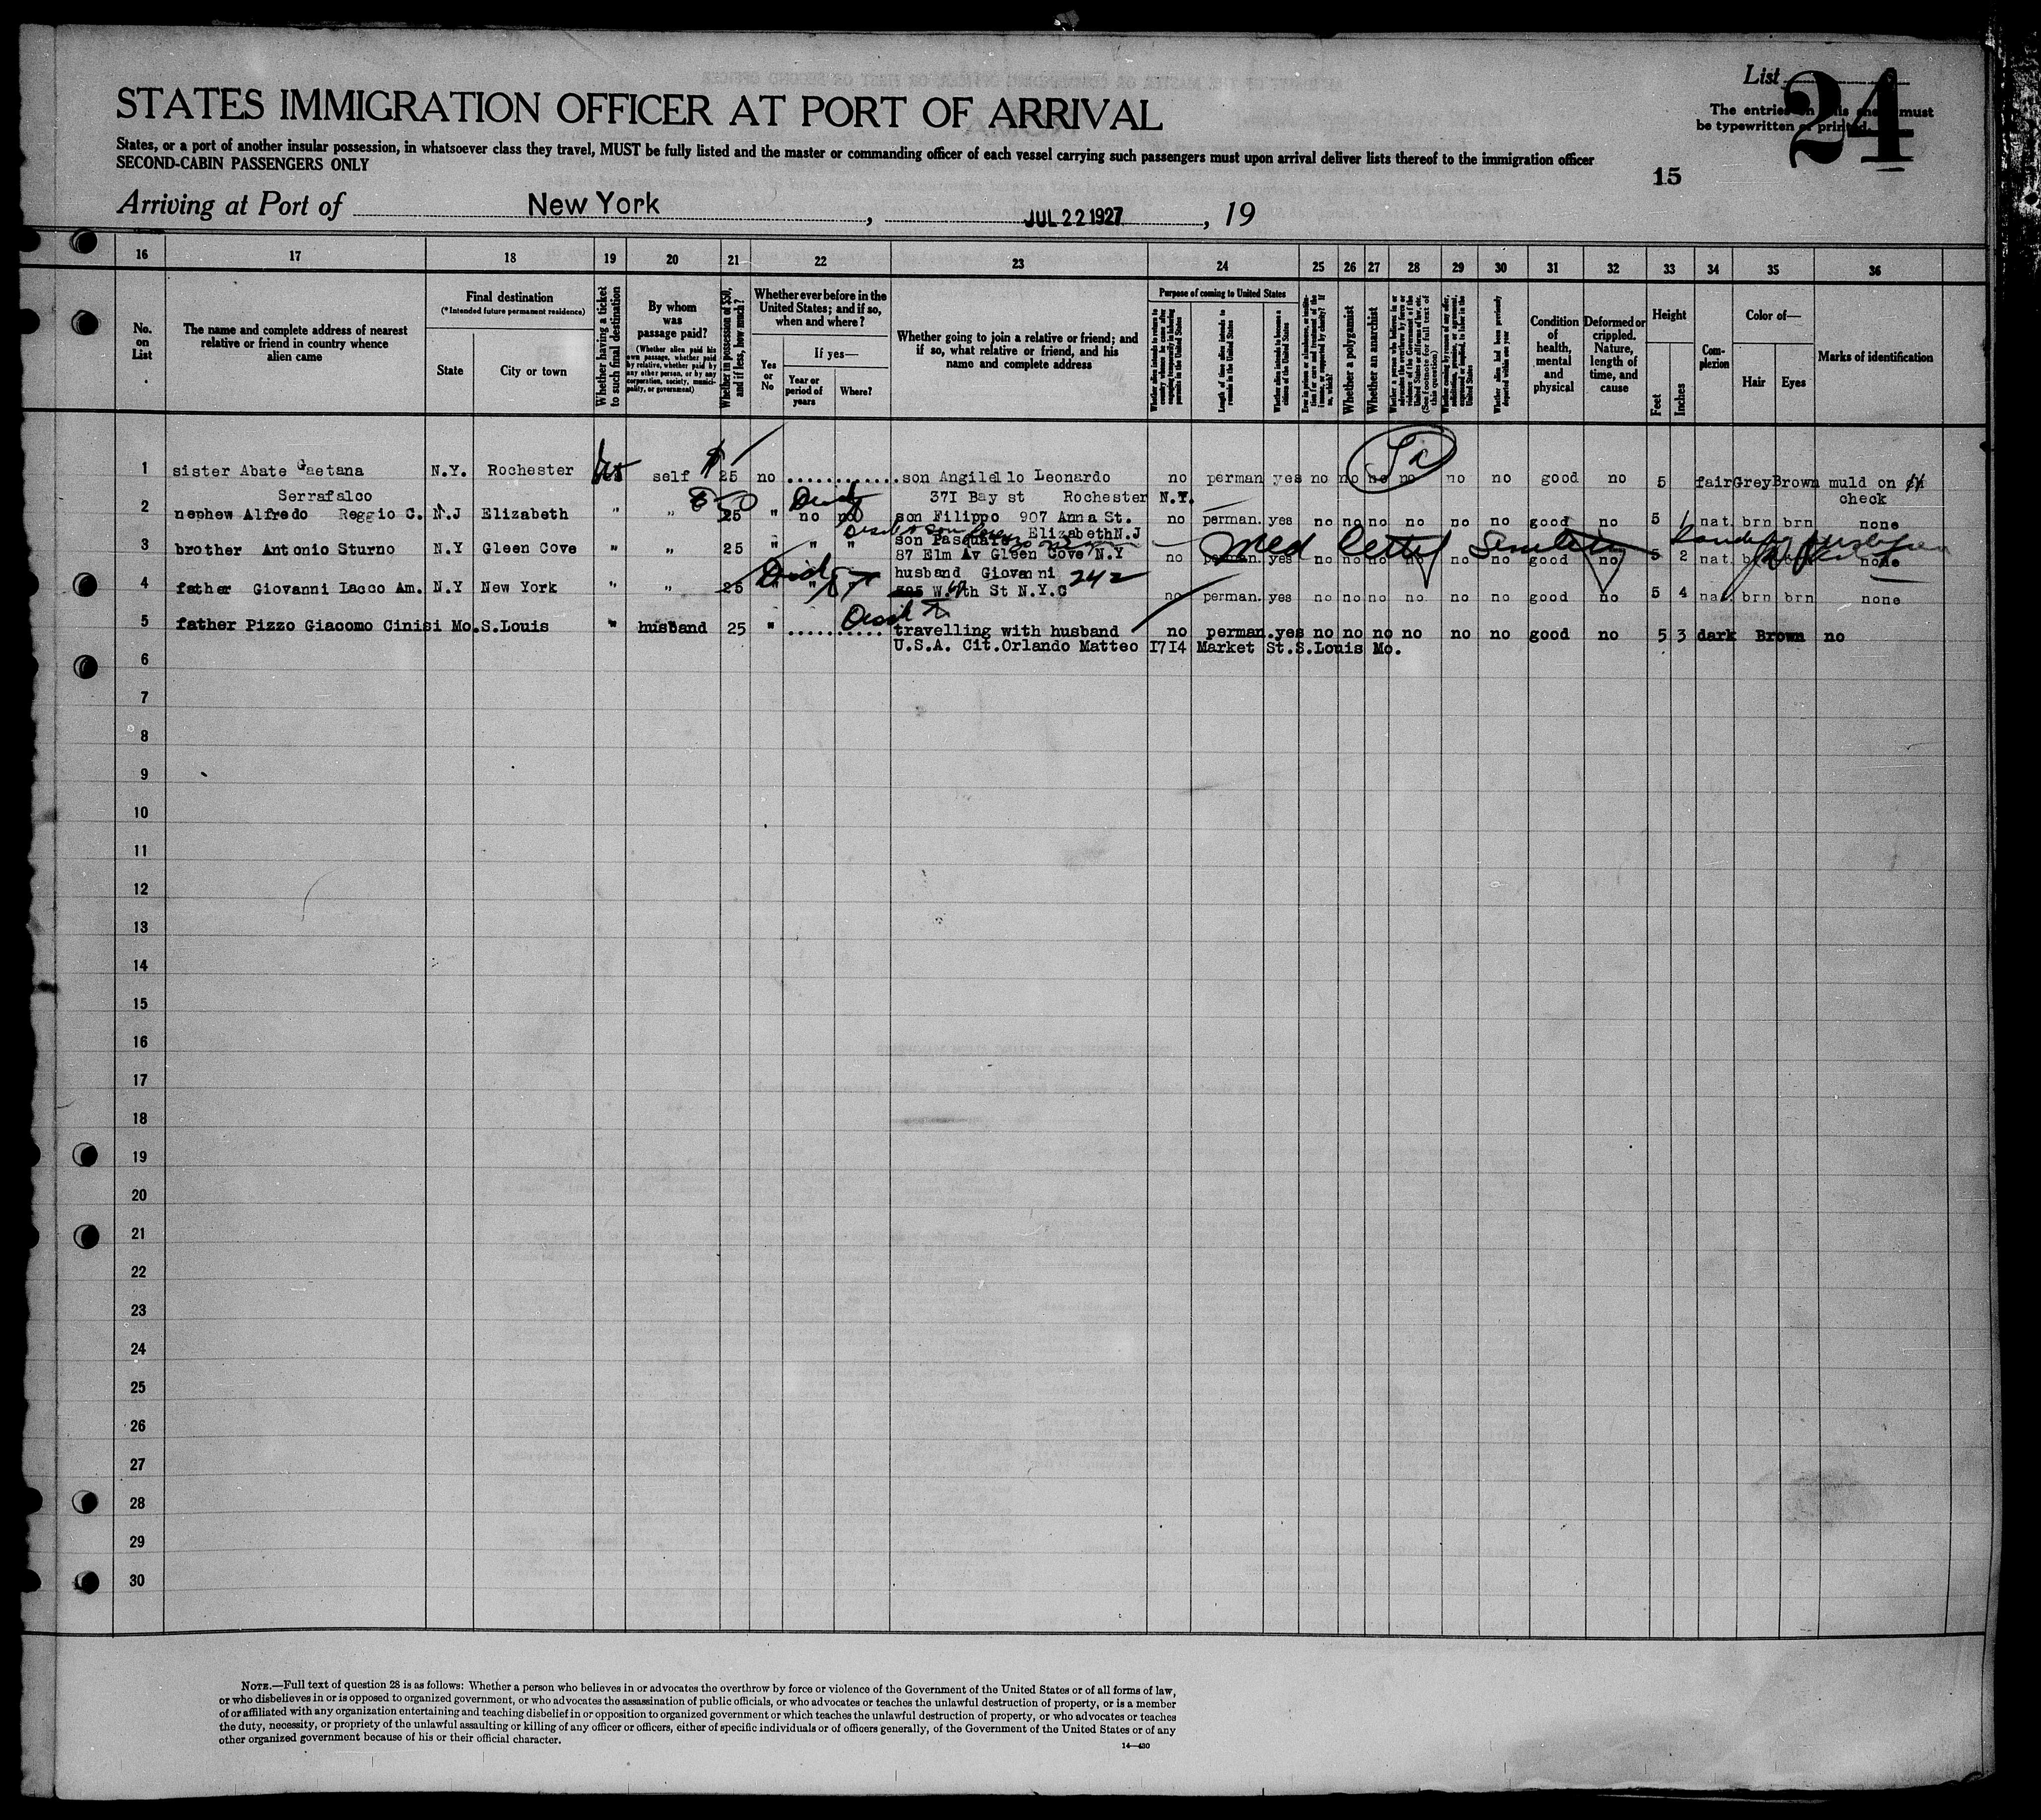 List
24
The entries on this sheet must
be typewritten or printed.
STATES IMMIGRATION OFFICER AT PORT OF ARRIVAL
States, or a port of another insular possession, in whatsoever class they travel, MUST be fully listed and the master or commanding officer of each vessel carrying such passengers must upon arrival deliver lists thereof to the immigration officer
SECOND-CABIN PASSENGERS ONLY
15
Arriving at Port of New York, JUL 22 1927, 19
16 17 18 19 20 21 22 23 24 25 26 27 28 29 30 31 32 33 34 35 36
No. on List
The name and complete address of nearest relative or friend in country whence alien came
Final destination
(*Intended future permanent residence)
State
City or town
Whether having a ticket to such final destination
By whom was passage paid?
(Whether alien paid his own passage, whether paid by relative, whether paid by any other person, or by any corporation, society, municipality, or government)
Whether in possession of $50, and if less, how much?
Whether ever before in the United States; and if so, when and where?
Yes or No
If yes—
Year or period of years
Where?
Whether going to join a relative or friend; and if so, what relative or friend, and his name and complete address
Purpose of coming to United States
Length of time alien intends to remain in the United States
Whether alien intends to become a citizen of the United States
Whether a polygamist
Whether an anarchist
Whether alien had been previously deported within one year
Condition of health, mental and physical
Deformed or crippled. Nature, length of time, and cause
Height
Feet
Inches
Complexion
Color of—
Hair
Eyes
Marks of identification
1 sister Abate Gaetana N.Y. Rochester self $ 25 no ............ son Angilello Leonardo no perman yes no no no no no no good no 5 fair Grey Brown muld on
Serrafalco 371 Bay st Rochester N.Y. check
2 nephew Alfredo Reggio C. N.J Elizabeth " " 25 " no no son Filippo 907 Anna St. no perman. yes no no no no no no good no 5 1 nat. brn brn none
Elizabeth N.J
3 brother Antonio Sturno N.Y Gleen Cove " " 25 " " " son Pasquale no perman. yes no no no no no no good no 5 2 nat. brn brn none
87 Elm Av Gleen Cove N.Y
Med
4 father Giovanni Lacco Am. N.Y New York " " 25 " " husband Giovanni 242 no perman. yes no no no no no no good no 5 4 nat. brn brn none
W. th St N.Y.C
5 father Pizzo Giacomo Cinisi Mo. S.Louis " husband 25 " ........... travelling with husband no perman. yes no no no no no no good no 5 3 dark Brown no
U.S.A. Cit. Orlando Matteo 1714 Market St. S.Louis Mo.
6
7
8
9
10
11
12
13
14
15
16
17
18
19
20
21
22
23
24
25
26
27
28
29
30
NOTE.—Full text of question 28 is as follows: Whether a person who believes in or advocates the overthrow by force or violence of the Government of the United States or of all forms of law,
or who disbelieves in or is opposed to organized government, or who advocates the assassination of public officials, or who advocates or teaches the unlawful destruction of property, or is a member
of or affiliated with any organization entertaining and teaching disbelief in or opposition to organized government or which teaches the unlawful destruction of property, or who advocates or teaches
the duty, necessity, or propriety of the unlawful assaulting or killing of any officer or officers, either of specific individuals or of officers generally, of the Government of the United States or of any
other organized government because of his or their official character.
14—430